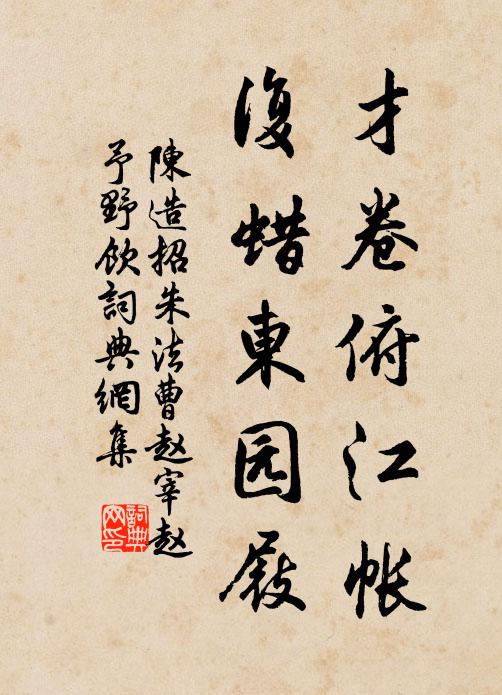 才卷俯江帐
復蜡東园屐
陳造招朱法曹赵宰赵
予野飲詞典網集
詞典网印